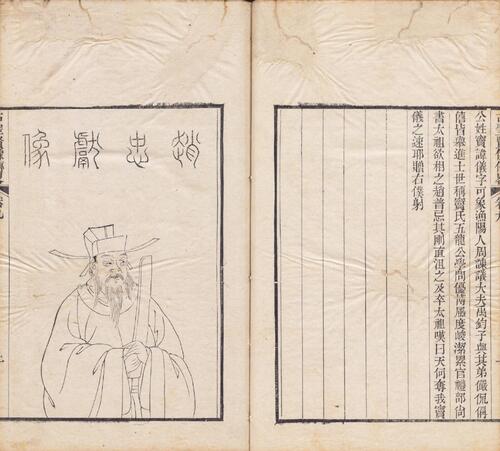 公姓竇諱儀字可象漁陽人周諫議大夫禹鈞子與其弟儼侃偁
僖皆舉進士世稱竇氏五龍公學問優博風度峻潔累官禮部尚
書太祖欲相之趙普忌其剛直沮之及卒太祖嘆曰天何奪我竇
儀之速耶贈右僕射
趙忠獻像